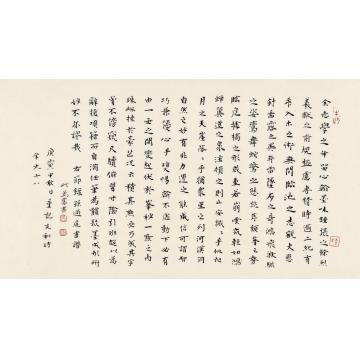 余志學之年留心翰墨味鍾張之餘烈
挹羲獻之前規極慮專精時逾二紀有
乖入木之術無間臨池之志觀夫懸
針垂露之異奔雷墜石之奇鴻飛獸駭
之姿鸞舞蛇驚之態絕岸頹峯之勢
臨危據槁之形或重若崩雲或輕如
蟬翼導之則泉注頓之則山安纖纖乎似初
月之出天崖落落乎猶衆星之列河漢同
自然之妙有非力運之能成信可謂智
巧兼優心手雙暢翰不虛動下必有
由一畫之間變起伏於峯杪一點之內
殊衄挫於豪芒況云積其點畫乃成其字
曾不傍窺尺牘俯習寸陰引班超以為
辭援項籍而自滿任筆為體聚墨成形妍
妙不亦謬哉 右節錄孫過庭書譜
庚寅中秋日
年九十八